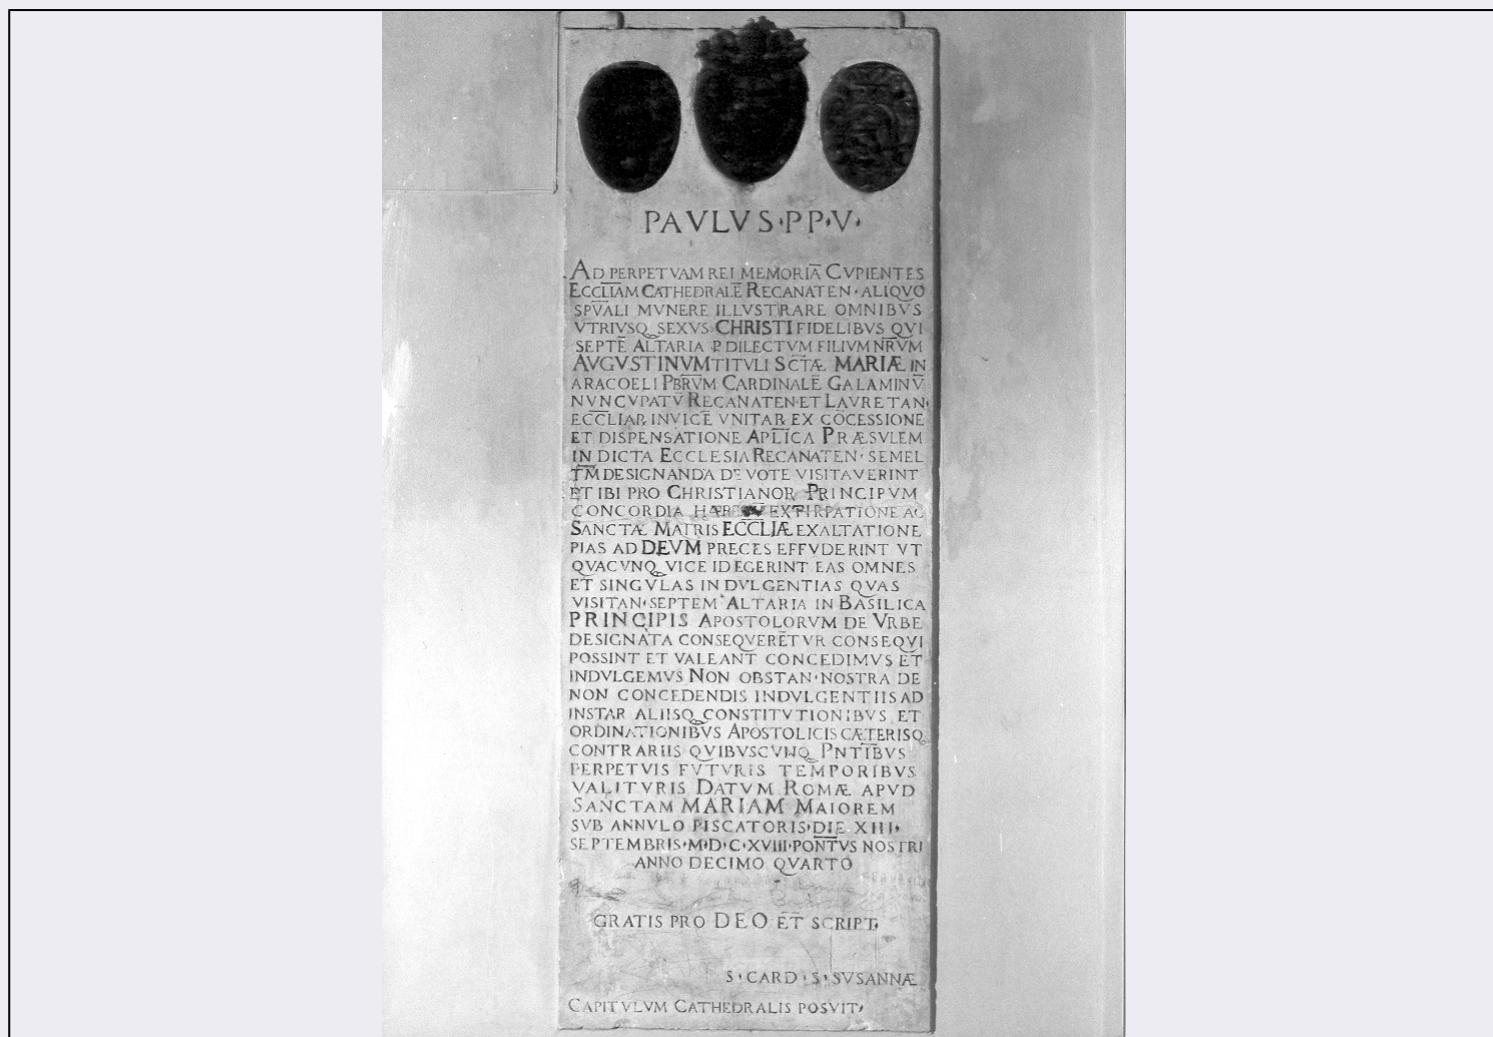 PAVLVS·PP·V·
AD PERPETVAM REI MEMORIĀ CVPIENTES
ECCLĪAM CATHEDRALĒ RECANATEN· ALIQVO
SPVALI MVNERE ILLVSTRARE OMNIBVS
VTRIVSQ SEXVS CHRISTI FIDELIBVS QVI
SEPTĒ ALTARIA P DILECTVM FILIVM NRVM
AVGVSTINVM TITVLI SCTÆ MARIÆ IN
ARACOELI PBRVM CARDINALĒ GALAMINŪ
NVNCVPATŪ RECANATEN· ET LAVRETAN·
ECCLIAR INVICĒ VNITAR EX CŌCESSIONE
ET DISPENSATIONE APLICA PRÆSVLEM
IN DICTA ECCLESIA RECANATEN· SEMEL
TM DESIGNANDA DEVOTE VISITAVERINT
ET IBI PRO CHRISTIANOR PRINCIPVM
CONCORDIA EXTIRPATIONE AC
SANCTÆ MATRIS ECCLIÆ EXALTATIONE
PIAS AD DEVM PRECES EFFVDERINT VT
QVACVNQ VICE ID EGERINT EAS OMNES
ET SINGVLAS INDVLGENTIAS QVAS
VISITAN· SEPTEM ALTARIA IN BASILICA
PRINCIPIS APOSTOLORVM DE VRBE
DESIGNATA CONSEQVERĒTVR CONSEQVI
POSSINT ET VALEANT CONCEDIMVS ET
INDVLGEMVS NON OBSTAN· NOSTRA DE
NON CONCEDENDIS INDVLGENTIIS AD
INSTAR ALIISQ CONSTITVTIONIBVS ET
ORDINATIONIBVS APOSTOLICIS CÆTERISQ
CONTRARIIS QVIBVSCVNQ PNTIBVS
PERPETVIS FVTVRIS TEMPORIBVS
VALITVRIS DATVM ROMÆ APVD
SANCTAM MARIAM MAIOREM
SVB ANNVLO PISCATORIS· DIE XIII·
SEPTEMBRIS· M·D·C·XVIII· PONTVS NOSTRI
ANNO DECIMO QVARTO
GRATIS PRO DEO ET SCRIPT·
S· CARD· S· SVSANNÆ
CAPITVLVM CATHEDRALIS POSVIT·